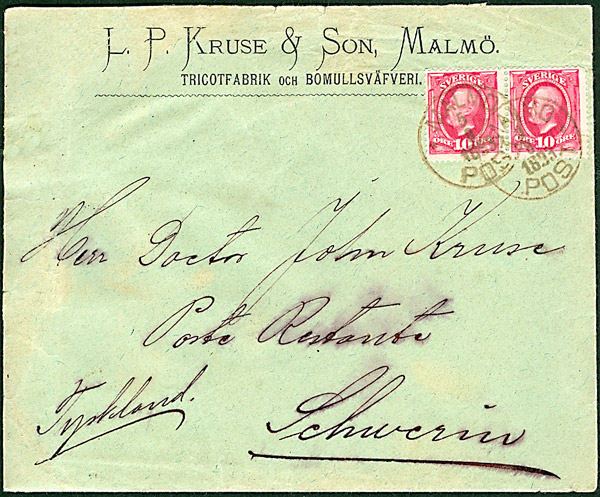 L. P. KRUSE & SON, MALMÖ.
TRICOTFABRIK OCH BOMULLSVÄFVERI.
SVERIGE SVERIGE
ÖRE 10 ÖRE ÖRE 10 ÖRE
POST
Herr Doctor John Kruse
Poste Restante
Tyskland.
Schwerin